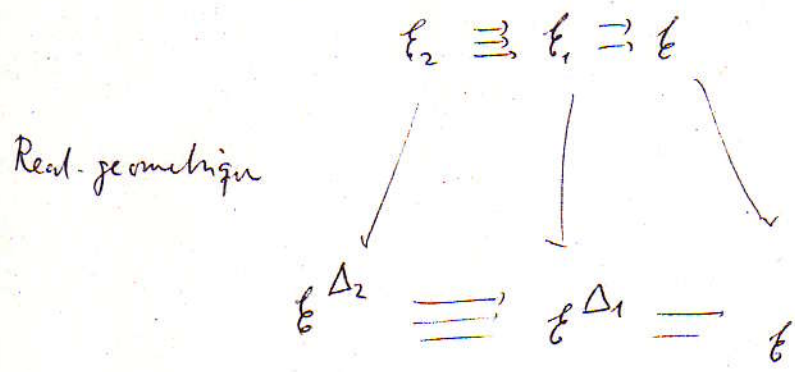 ℰ₂ ⇶ ℰ₁ ⇉ ℰ
Real. géometrique
ℰ^Δ₂ ⇶ ℰ^Δ₁ ⇉ ℰ